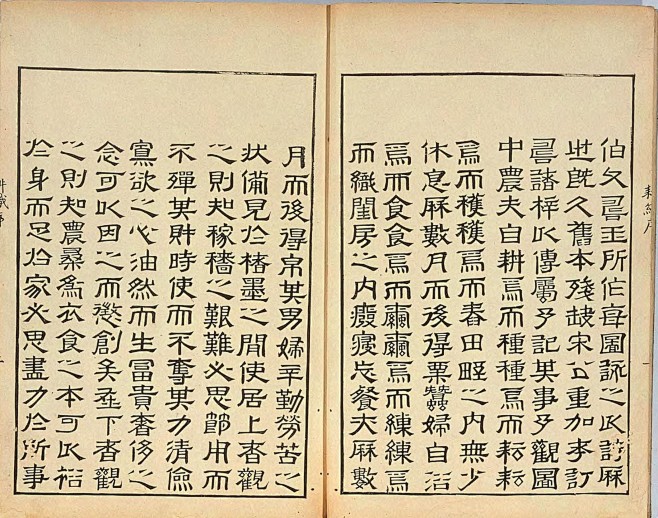 伯父壽玉所作每圖詠之以詩歷
世既久舊本殘缺宋公重加考訂
壽諸梓以傳屬予記其事予觀圖
中農夫自耕焉而種種焉而耘耘
焉而穫穫焉而舂田野之内無少
休息歷數月而後得粟蠶婦自浴
焉而食食焉而繭繭焉而練練焉
而織閨房之内癈寢忘餐亦歷數
月而後得帛其男婦辛勤勞苦之
狀備見於楮墨之間使居上者觀
之則知稼穡之艱難必思節用而
不殫其財時使而不奪其力清儉
寡欲之心油然而生富貴奢侈之
念可以因之而懲創矣在下者觀
之則知農桑爲衣食之本可以裕
於身而足於家必思盡力於所事